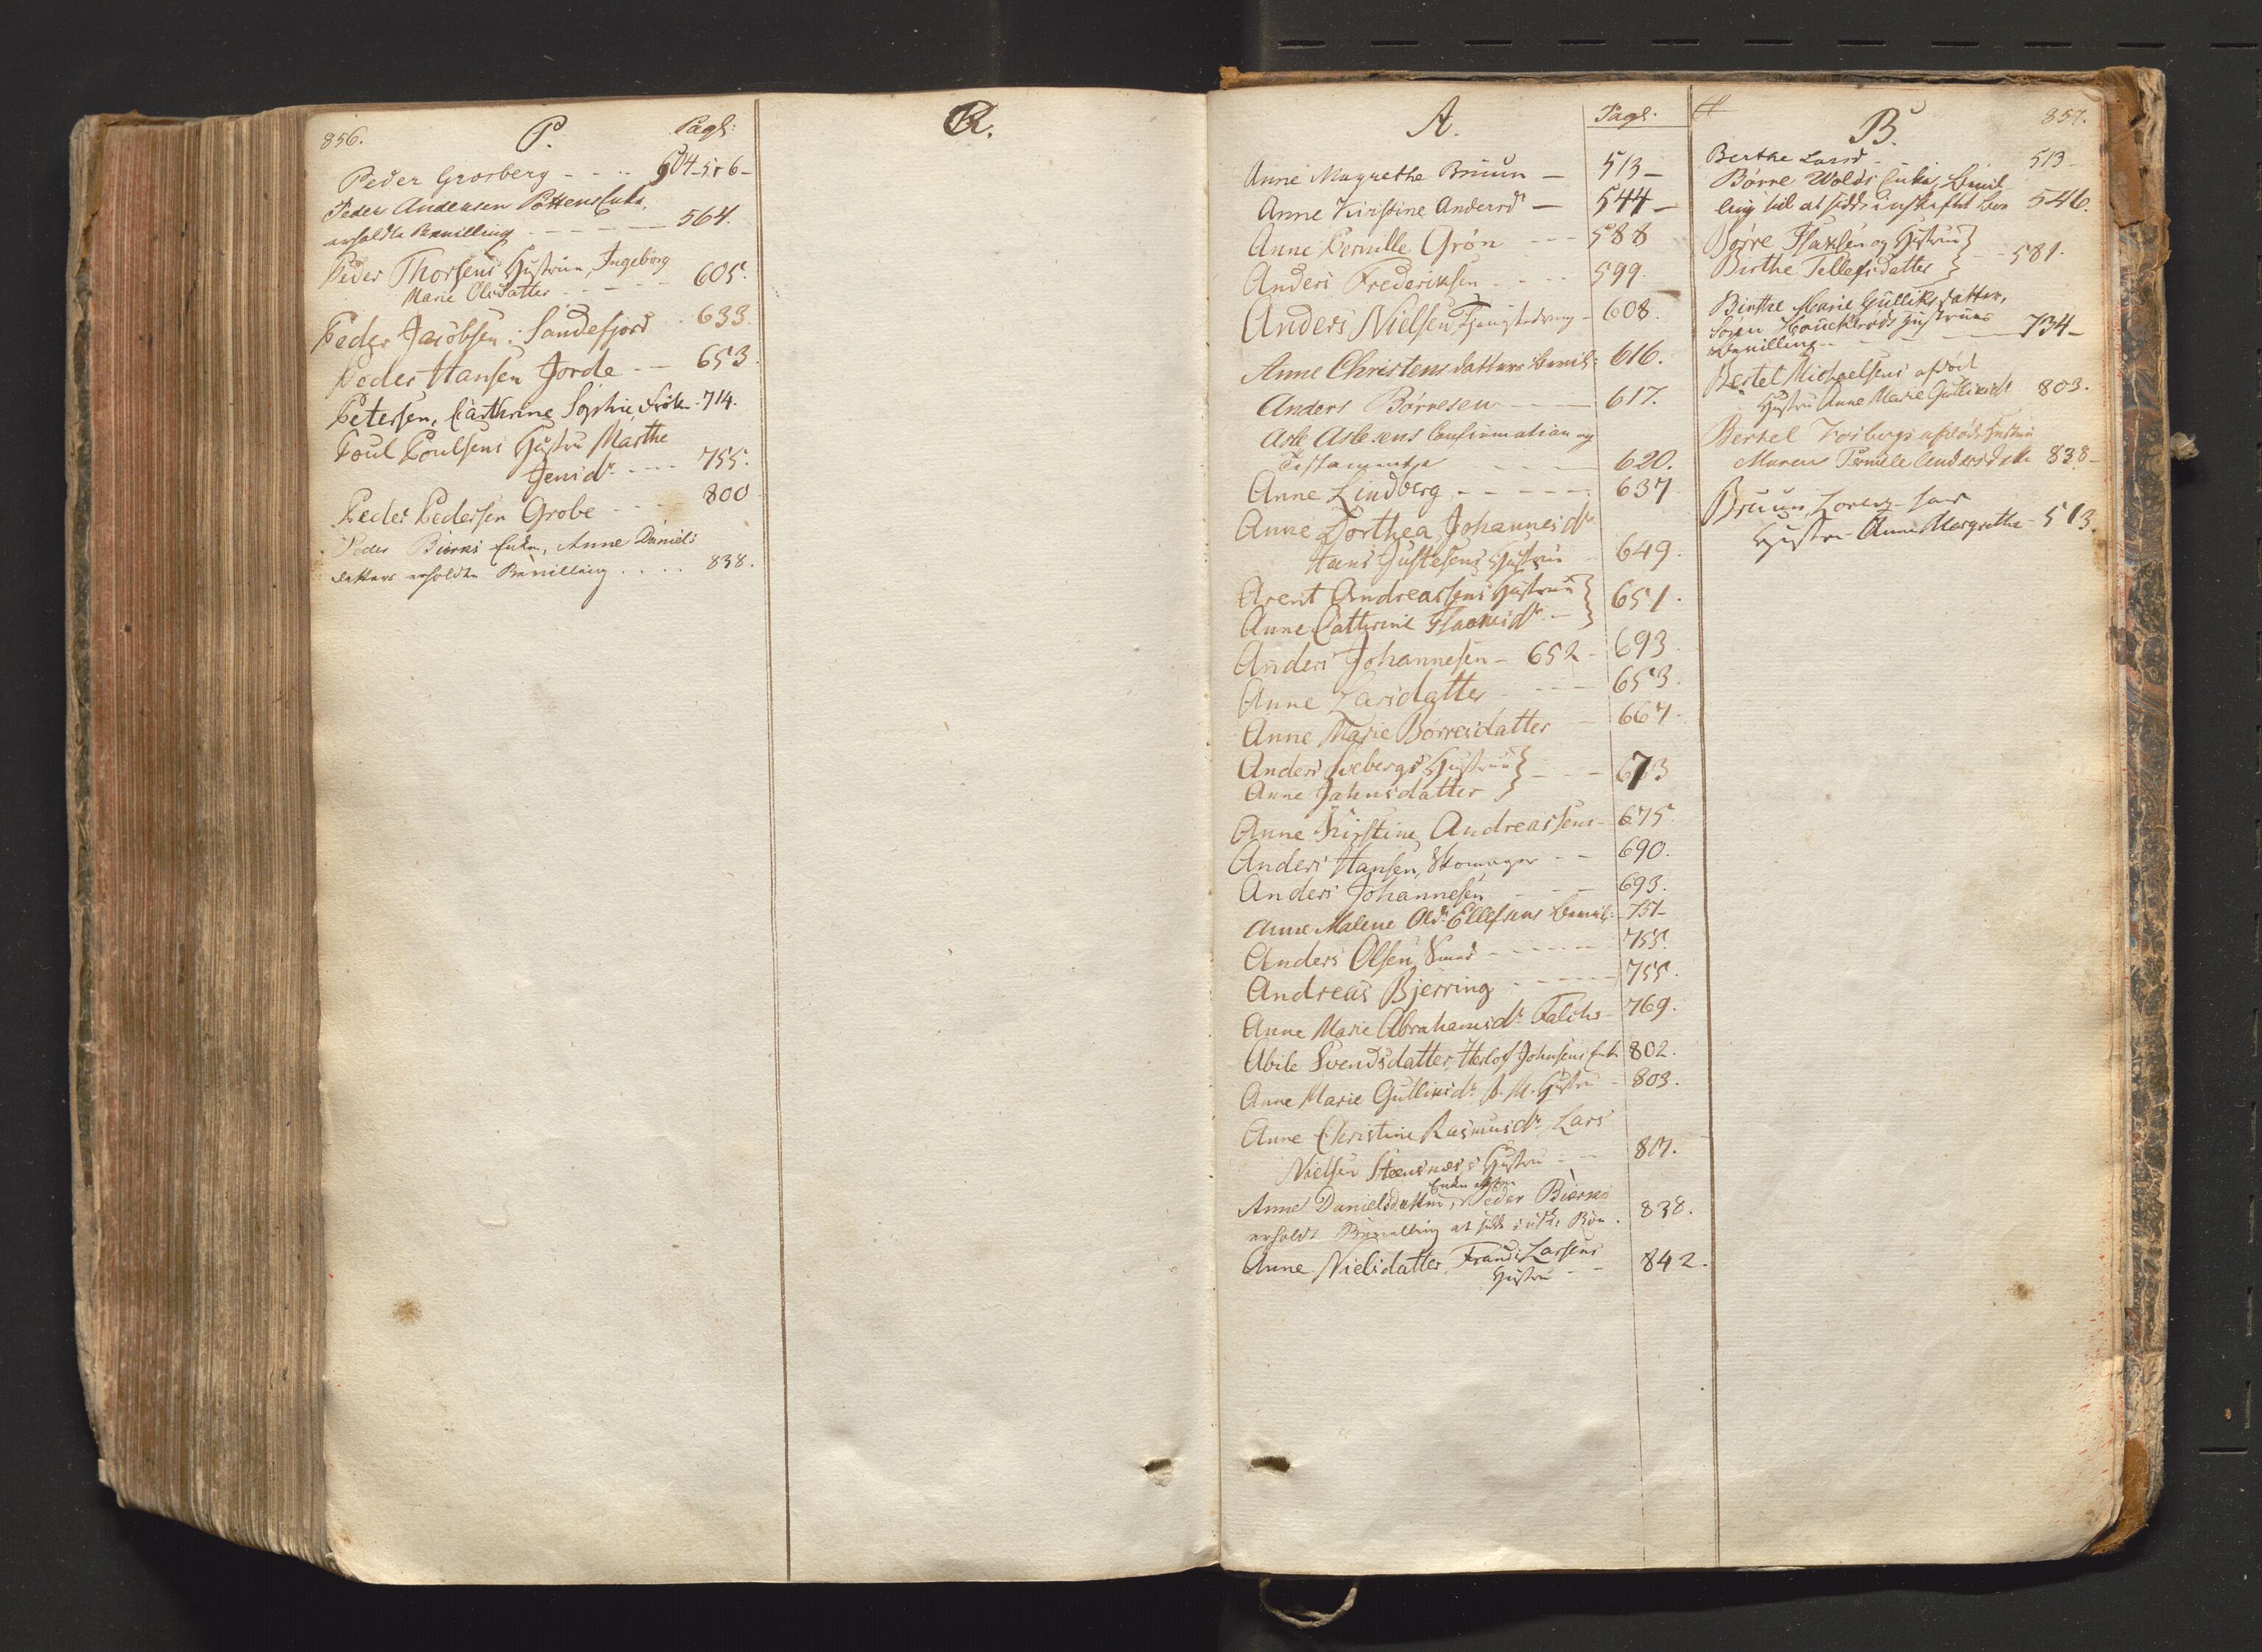 856.
P.
Pagl:
Peder Grosberg - - - 504-5 & 6-
Peder Andersen Pottens Enke,
erholdte Bevilling - - - - - 564.
Peder Thorsens Hustrue Ingeborg
Marie Olsdatter - - - - - 605.
Peder Jacobsen i Sandefjord - 633.
Peder Hansen Jorde - - 653.
Petersen, Carthrine Sophie Frøken 714.
Poul Poulsens Hustru Marthe
Jensdr - - - - 755.
Peder Pedersen Grobe - - - 800
Peder Biørns Enke, Anne Daniels
datters erholdte Bevilling . . . . 838.
R.
A.
Pagl.
Anne Magrethe Bruun - 513-
Anne Kirstine Andersdr - 544-
Anne Pernille Grøn - - - 588
Anders Frederiksen - - - 599.
Anders Nielsen, - 608.
Anne Christensdatters Bevil: 616.
Anders Børresen - - 617.
Asle Aslesens Confirmation og
Testamente - - - 620.
Anne Lindberg - - - - - 637
Anne Dorthea Johannesdr
Hans Justesens Hustrue - 649.
Arent Andreassens Hustrue
Anne Cathrine Isaaksdr - 651.
Anders Johannesen - 652 - 693
Anne Larsdatter - - - - 653.
Anne Marie Børresdatter - 667.
Anders Hustrue
Anne Jahnsdatter - - - 673
Anne Kirstine Andreassens - 675.
Anders Hansen, Skomager - - 690.
Anders Johannesen - - - 693.
Anne Malene Olsdr Ellefsens Bevil: - 751-
Anders Olsen Smed - - - - - 755.
Andreas Bjerring - - - - - 755.
Anne Marie Abrahamsdr Falchs - 769.
Abile Svendsdatter, Herlof Johnsens Enke 802.
Anne Marie Gulliksdr B. M. Hustru - 803.
Anne Christine Rasmusdr Lars
Nielsen Steensnes's Hustru - - 817.
Enke efter
Anne Danielsdatter, Peder Biørns
erholdt Bevilling at sidde i Boe . 838.
Anne Nielsdatter, Frands Larsens
Hustru - - 842.
B.
857.
Berthe Larsd - - 513-
Børre Wolds Enke, Bevil
ling til at sidde i uskiftet Boe 546.
Børre Isaksen og Hustrue
Birthe Tellefsdatter - - 581.
Birthe Marie Gulliksdatter,
Søren Hustrues
Bevilling - - - - - 734-
Bertel Michaelsens afdød
Hustru Anne Marie Gulliksdr 803.
Bertel afdøde Hustru
Maren Pernille Andersdatter 838-
Bruun, Lorentz
Hustru Anne Margrethe - 513.